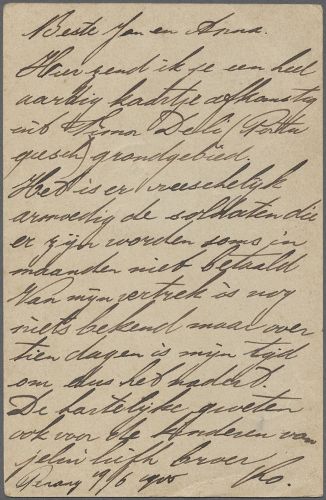 Beste Jan en Anna.
Hier zend ik je een heel
aardig kaartje afkomstig
uit Timor Delli (Portu
geesch) grondgebied.
Het is er vreeschelijk
armoedig de soldaten die
er zijn worden soms in
maanden niet betaald
Van mijn vertrek is nog
niets bekend maar over
tien dagen is mijn tijd
om dus het nadert.
De hartelijke groeten
ook voor de kinderen van
je liefh broer
19/6